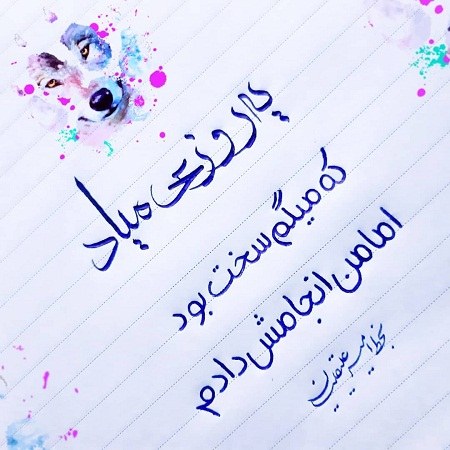 یه روزی میاد
که میگم سخت بود
اما من انجامش دادم
بخط امیر